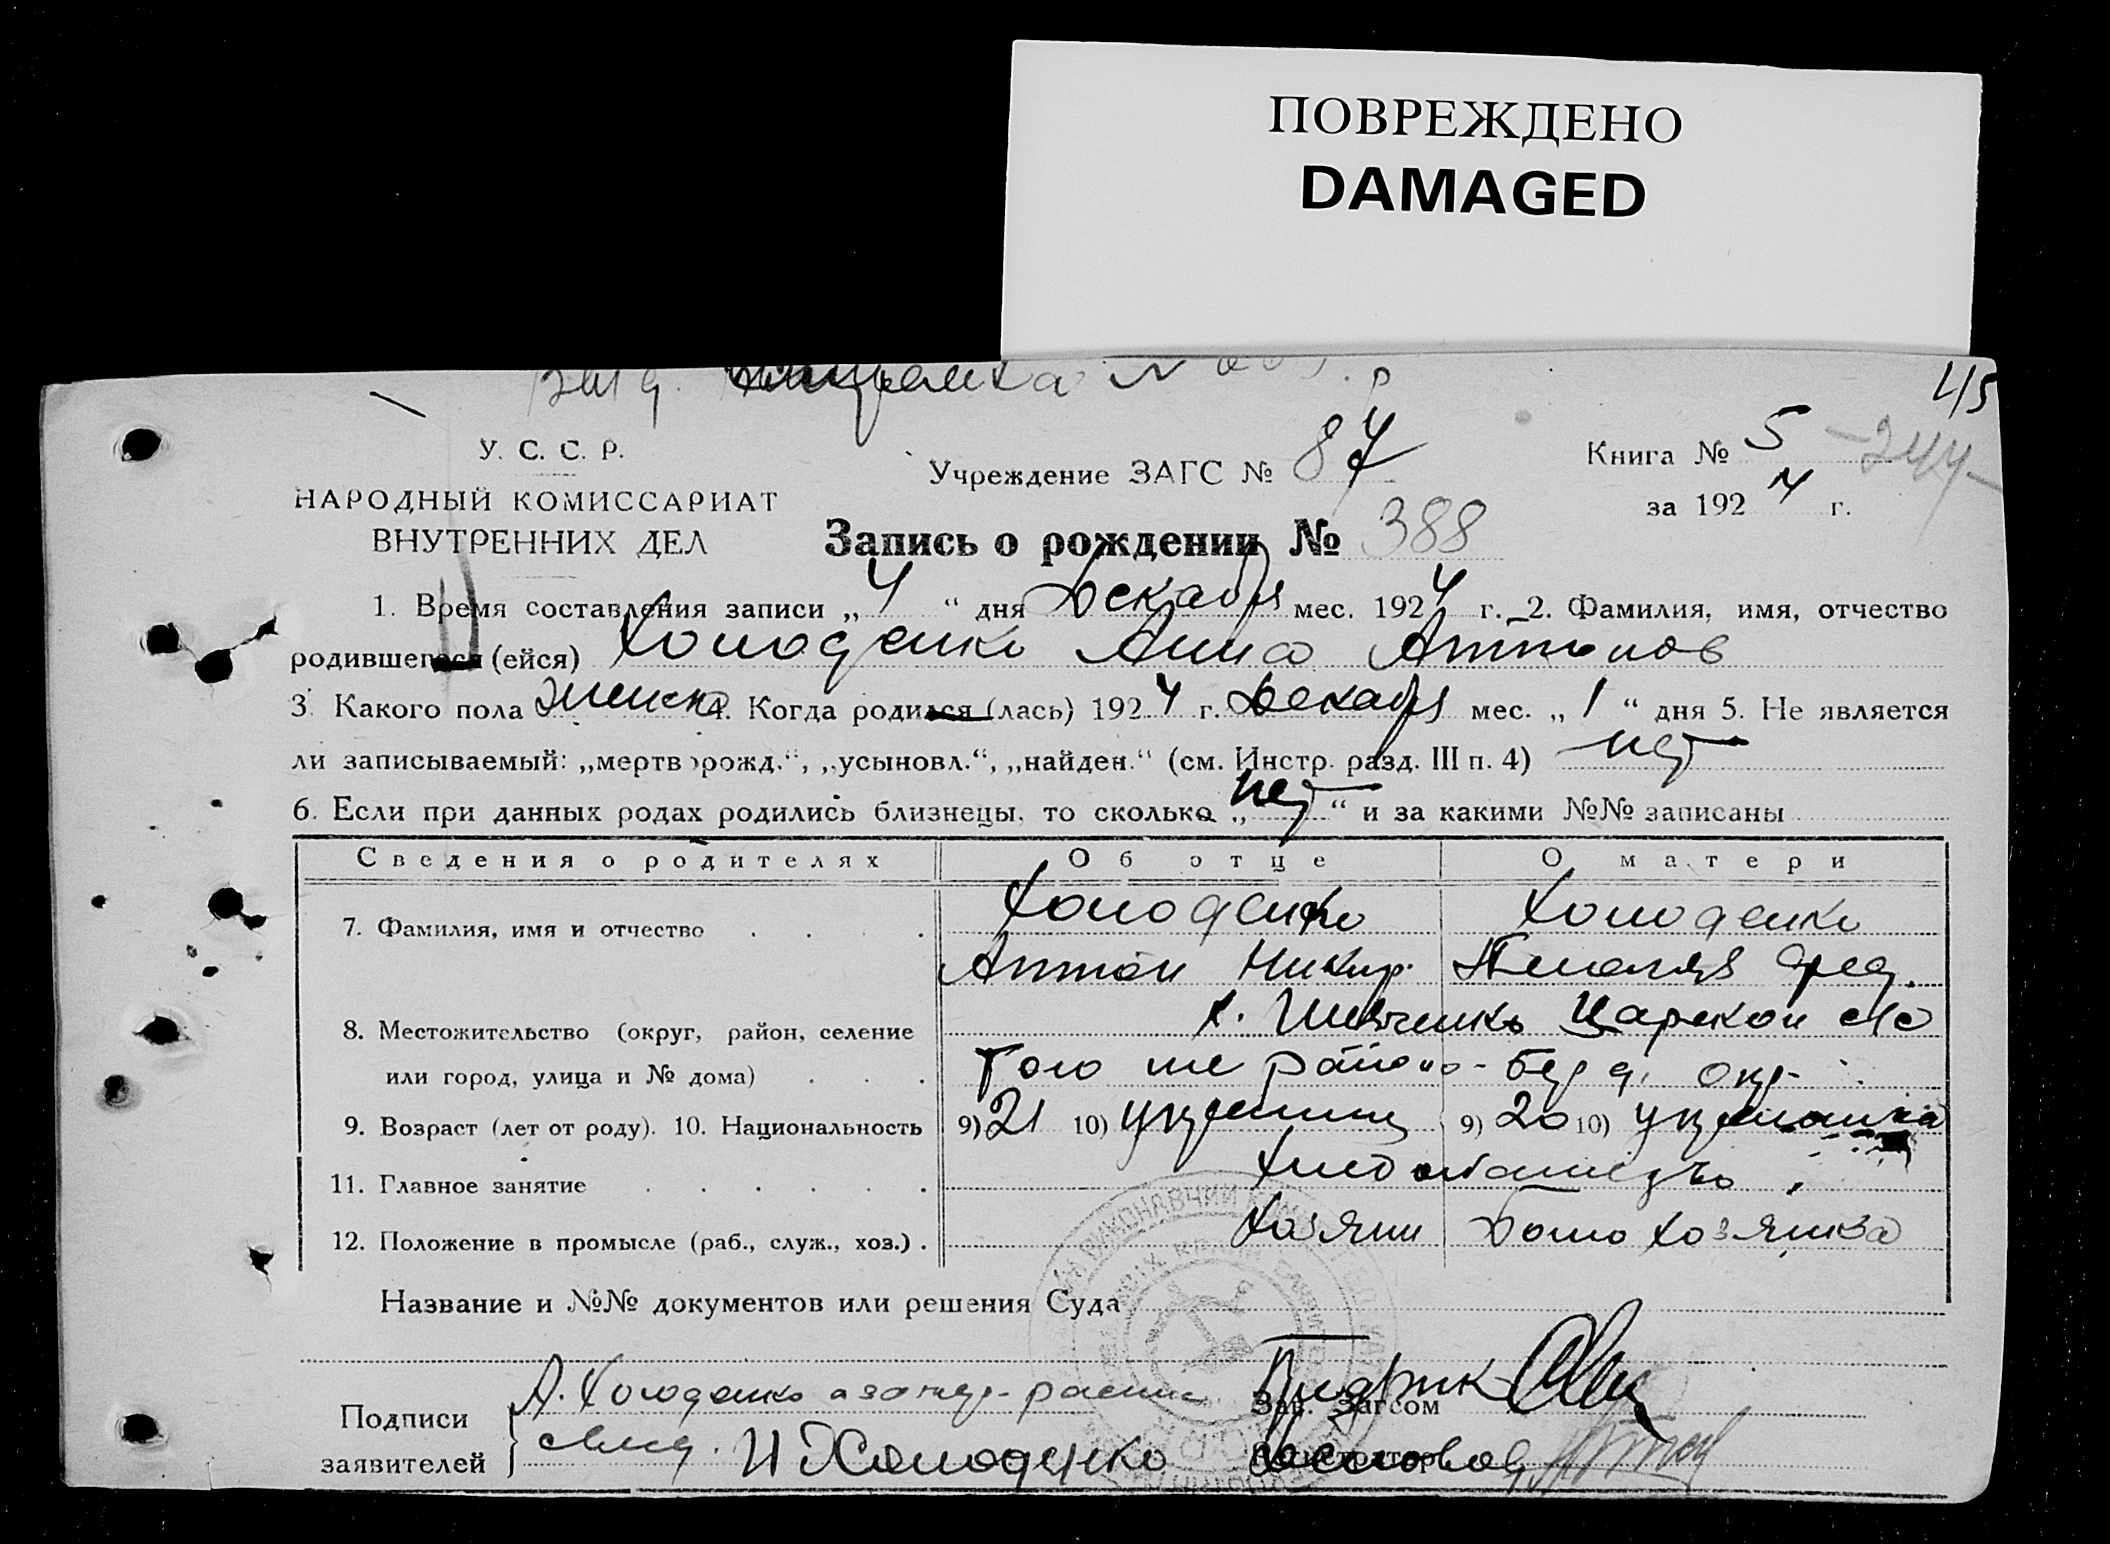 ПОВРЕЖДЕНО
DAMAGED
45
У. С. С. Р.
НАРОДНЫЙ КОМИССАРИАТ
ВНУТРЕННИХ ДЕЛ
Учреждение ЗАГС № 87
Книга № 5 -244-
за 1924 г.
Запись о рождении № 388
1. Время составления записи „4“ дня Декабря мес. 1924 г. 2. Фамилия, имя, отчество
родившегося (ейся) Холоденко Анна Антонов
3. Какого пола женск 4. Когда родился (лась) 1924 г. Декабря мес. „1“ дня 5. Не является
ли записываемый: „мертворожд.“, „усыновл.“, „найден.“ (см. Инстр. разд. III п. 4) нет
6. Если при данных родах родились близнецы, то сколько „нет“ и за какими №№ записаны
Сведения о родителях Об отце О матери
7. Фамилия, имя и отчество Холоденко Холоденко
Антон Никиф.
8. Местожительство (округ, район, селение
или город, улица и № дома) Того же района Берд. окр.
9. Возраст (лет от роду). 10. Национальность 9) 21 10) украинец 9) 20 10) украинка
11. Главное занятие
12. Положение в промысле (раб., служ., хоз.) Хозяин Домохозяйка
Название и №№ документов или решения Суда
Подписи
заявителей
А. Холоденко
И Холоденко
Зав. Загсом
Регистратор